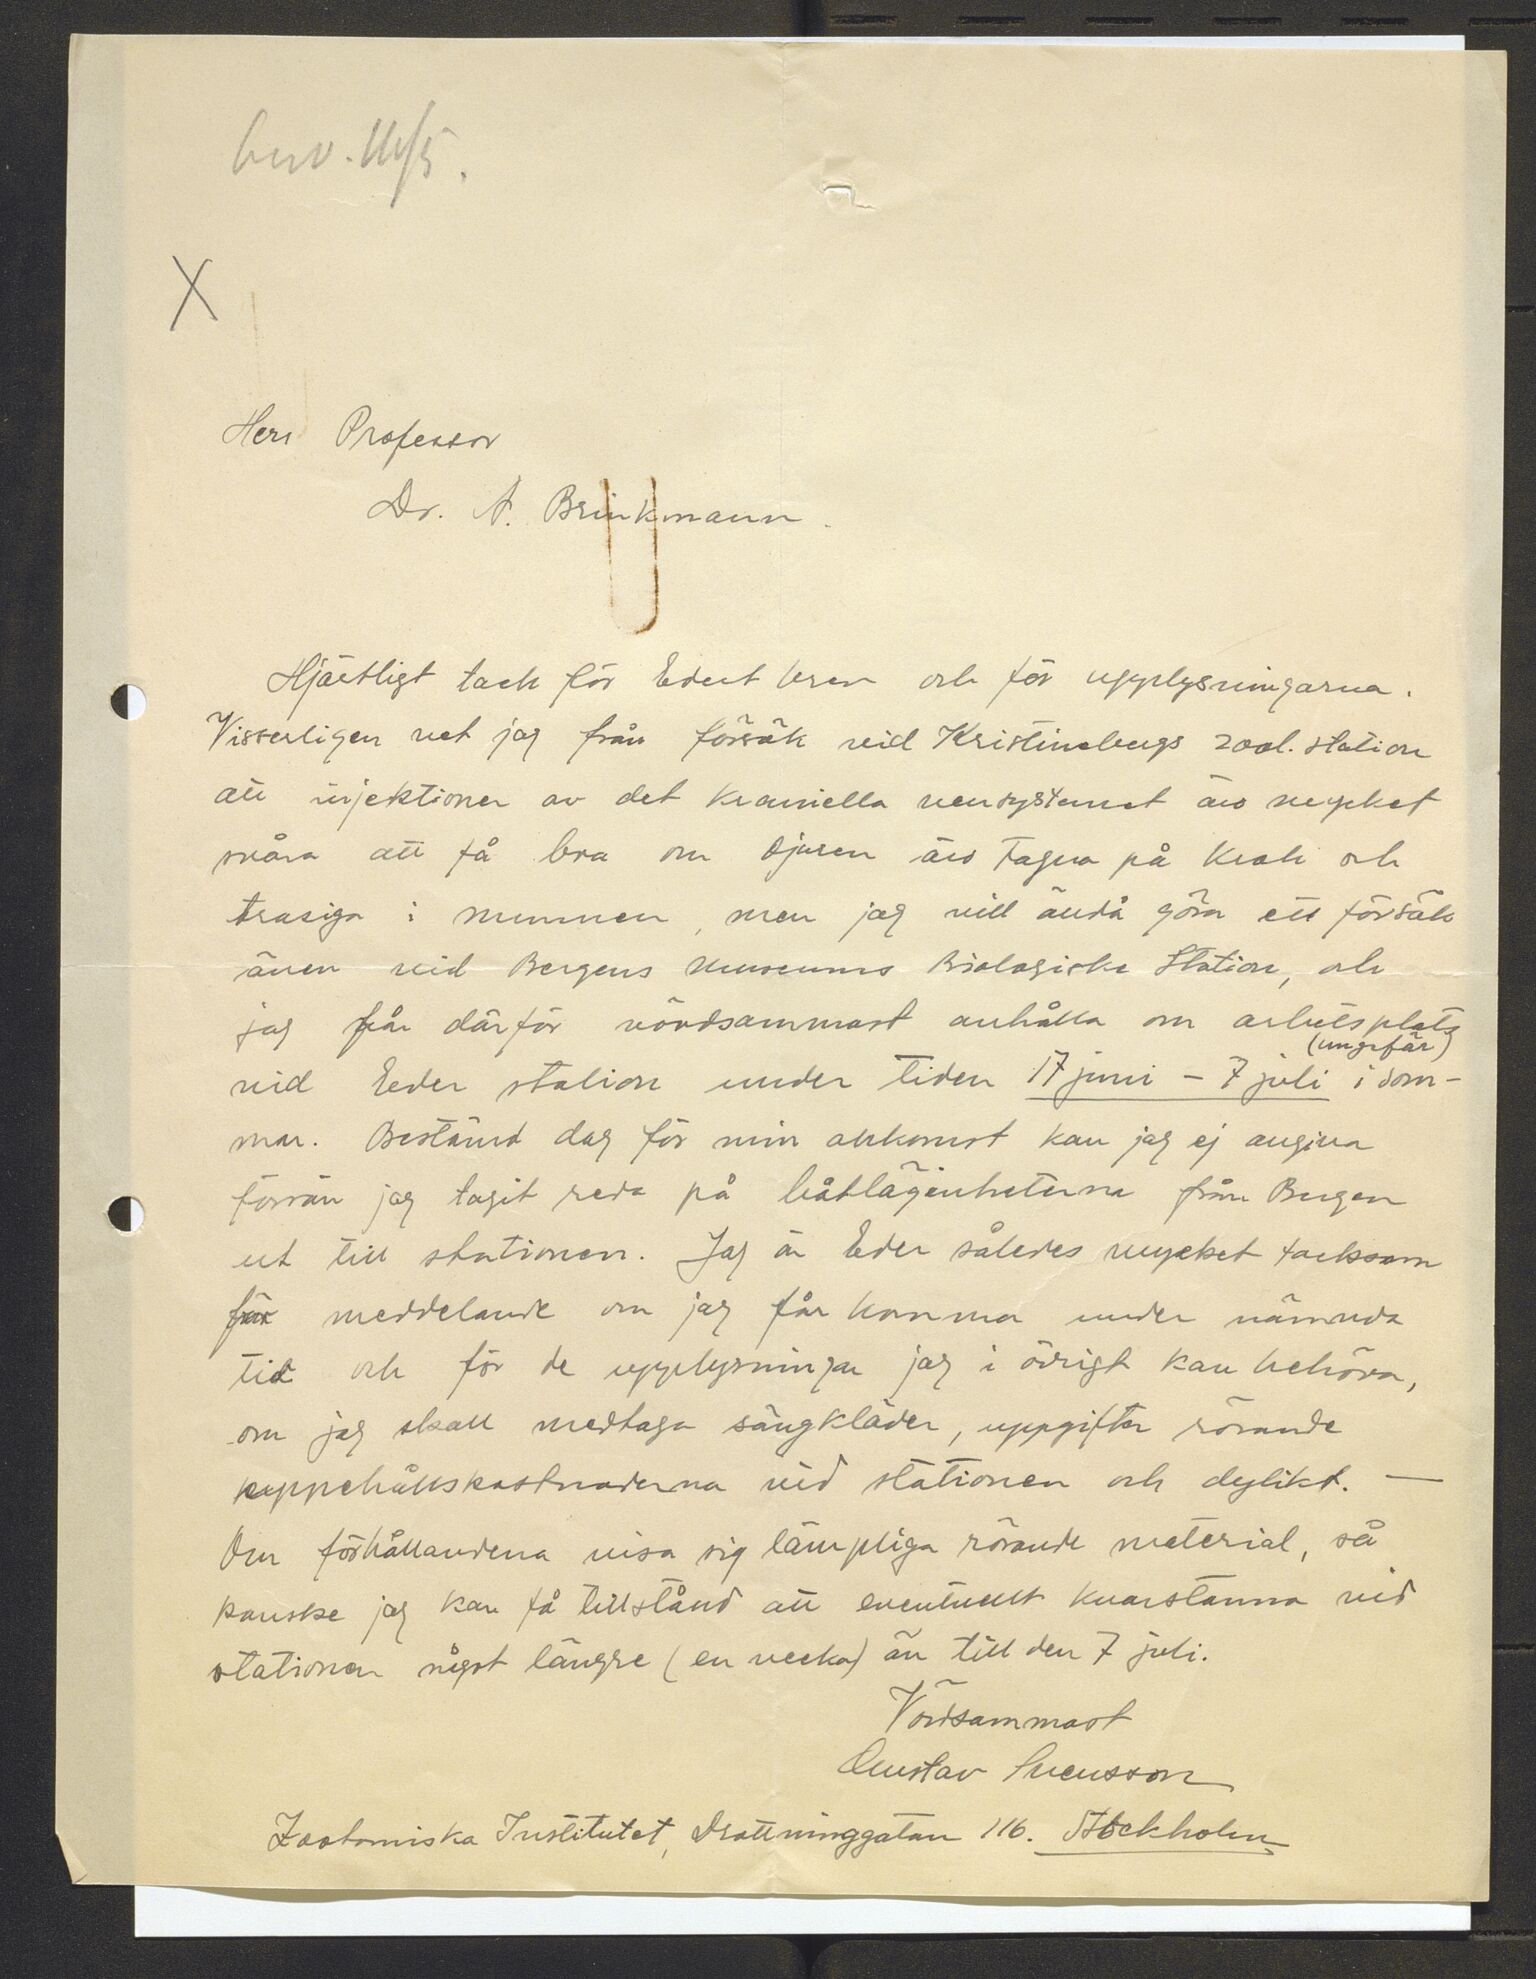 besv. 16/5.
X
Herr Professor
Dr. A. Brinkmann.
Hjärtligt tack för Edert brev och för upplysningarna.
Visserligen vet jag från försök vid Kristinebergs zool. station
att injektioner av det kraniella vensystemet äro mycket
svåra att få bra om djuren äro tagna på krok och
trasiga i munnen, men jag vill ändå göra ett försök
även vid Bergens Museums Biologiske Station, och
jag får därför vördsammast anhålla om arbetsplats
vid Eder station under tiden 17 juni - 7 juli (ungefär) i som-
mar. Bestämd dag för min ankomst kan jag ej angiva
förrän jag tagit reda på båtlägenheterna från Bergen
ut till stationen. Jag är Eder således mycket tacksam
för meddelande om jag får komma under nämnda
tid och för de upplysningar jag i övrigt kan behöva,
om jag skall medtaga sängkläder, uppgifter rörande
uppehållskostnaderna vid stationen och dylikt. —
Om förhållandena visa sig lämpliga rörande material, så
kanske jag kan få tillstånd att eventuellt kvarstanna vid
stationen något längre (en vecka) än till den 7 juli.
Vördsammast
Gustav Svensson
Zootomiska Institutet, Drottninggatan 116. Stockholm